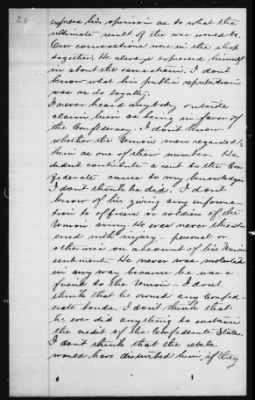 26
express his opinion as to what the
ultimate result of the war would be.
Our conversations were in the shop
together. He always expressed himself
in about the same strain. I don't
know what his public reputation
was as to loyalty.
I never heard anybody outside
claim him as being in favor of
the Confederacy. I don't know
whether the Union men regarded
him as one of their number. He
didn't contribute a cent to the Con-
federate cause to my knowledge.
I don't think he did. I don't
know of his giving any informa-
tion to officers or soldiers of the
Union army. He was never threat-
ened with injury - personal or
otherwise on account of his Union
sentiments. He never was molested
in any way because he was a
friend to the Union - I don't
think that he owned any Confed-
erate bonds. I don't think that
he ever did anything to sustain
the credit of the Confederate States.
I don't think that the state
would have disturbed him, if they